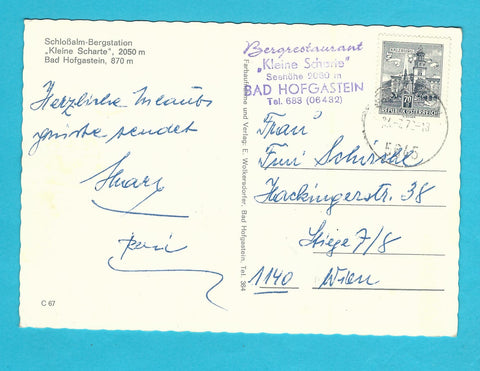 Schloßalm-Bergstation
„Kleine Scharte", 2050 m
Bad Hofgastein, 870 m
Herzliche Urlaubs
grüße sendet
C 67
Farbaufnahme und Verlag: E. Wolkersdorfer, Bad Hofgastein, Tel. 364
Bergrestaurant
„Kleine Scharte"
Seehöhe 2050 m
BAD HOFGASTEIN
Tel. 683 (06432)
REPUBLIK ÖSTERREICH
Frau
Hackingerstr. 38
Stiege 7/8
1140 Wien